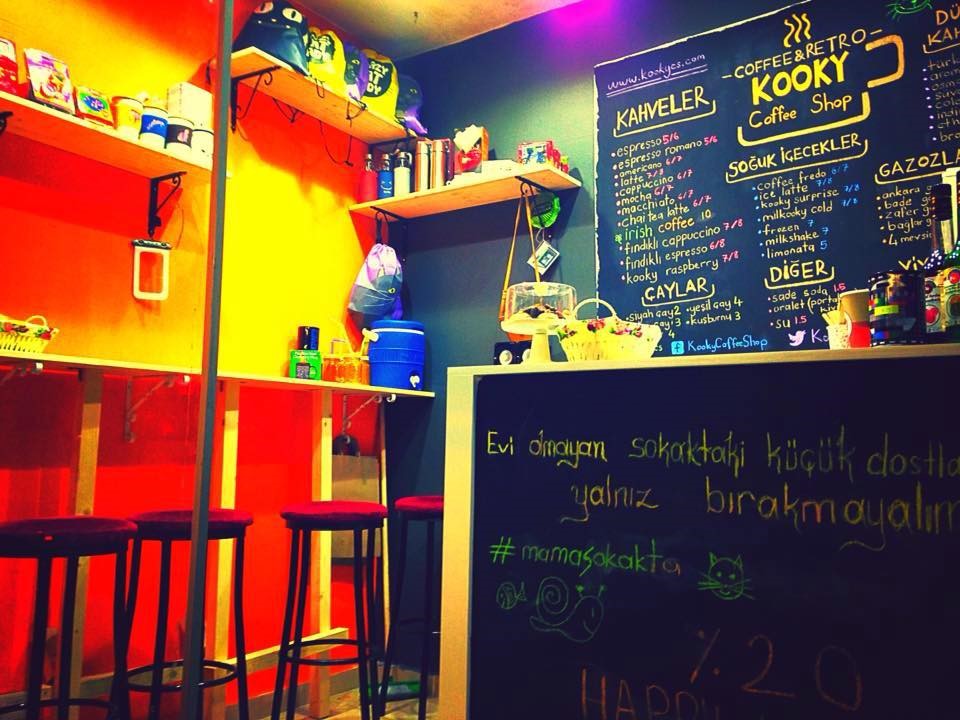 www.kookycs.com
COFFEE & RETRO
KOOKY
Coffee Shop
KAHVELER
espresso 5/6
espresso romano 5/6
americano 6/7
latte 7/8
cappuccino 6/7
mocha 6/7
macchiato 6/7
chai tea latte 6/7
irish coffee 10
fındıklı cappuccino 7/8
fındıklı espresso 6/8
kooky raspberry 7/8
ÇAYLAR
siyah çay 2
yeşil çay 4
kuşburnu 3
SOĞUK İÇECEKLER
coffee fredo 6/7
ice latte 7/8
kooky surprise 7/8
milkooky cold 7/8
frozen 7
milkshake 7
limonata 5
DİĞER
sade soda 1.5
oralet (porta
su 1.5
KAH
GAZOZLA
ankara
bade
zafer
bağlar
4 mevsi
KookyCoffeeShop
Evi olmayan sokaktaki küçük dostla
yalnız bırakmayalım
#mamasokakta
%20
HAPPY